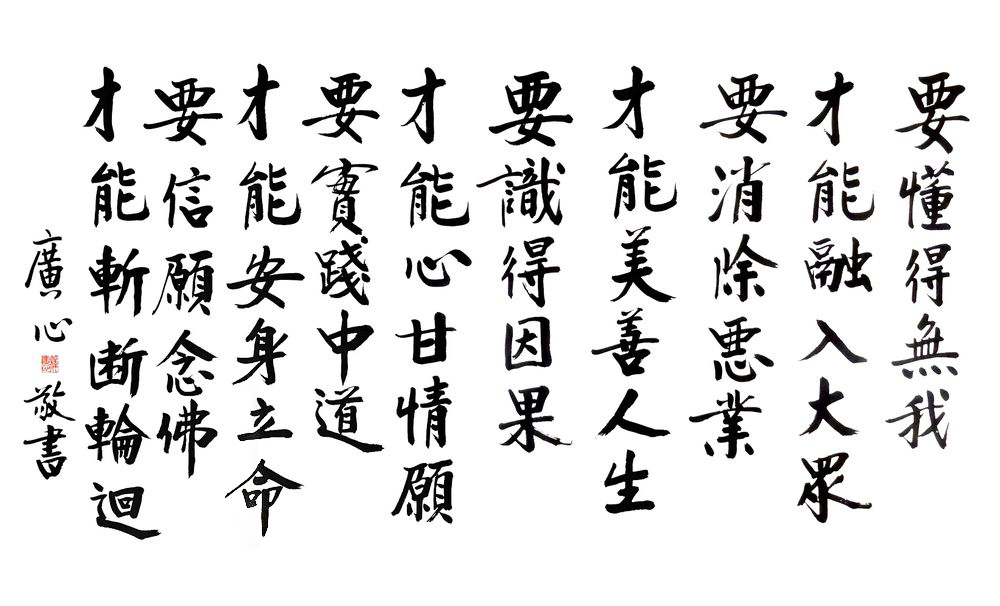 要懂得無我
才能融入大眾
要消除惡業
才能美善人生
要識得因果
才能心甘情願
要實踐中道
才能安身立命
要信願念佛
才能斬断輪迴
廣心敬書